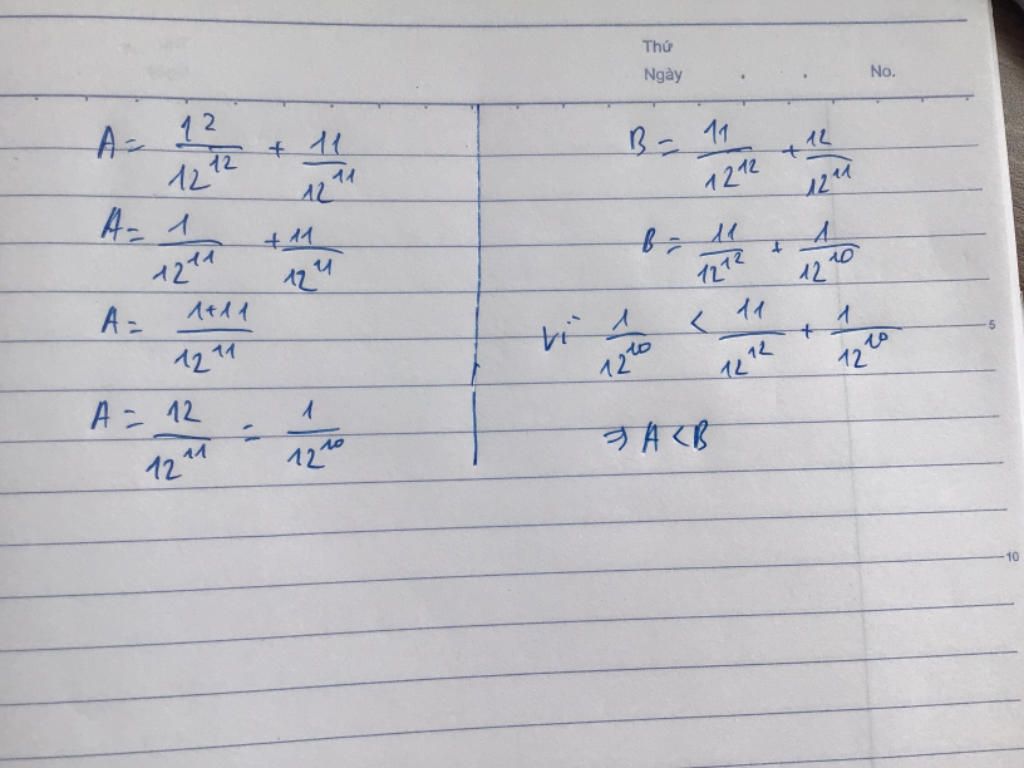 Thứ
Ngày . . No.
A = 12/12^12 + 11/12^11
A = 1/12^11 + 11/12^11
A = 1+11/12^11
A = 12/12^11 = 1/12^10
B = 11/12^12 + 12/12^11
B = 11/12^12 + 1/12^10
Vì 1/12^10 < 11/12^12 + 1/12^10
⇒ A < B
5
10